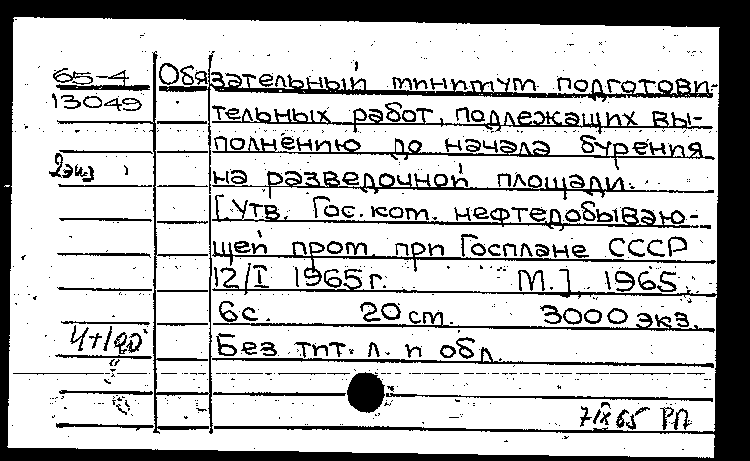 65-4 Обязательный минимум подготови-
13049 тельных работ, подлежащих вы-
полнению до начала бурения
2 экз на разведочной площади.
[Утв. Гос. ком. нефтедобываю-
щей пром. при Госплане СССР
12/I 1965 г. М.], 1965.
6 с. 20 см. 3000 экз.
Без тит. л. и обл.
7 IX 65 РП